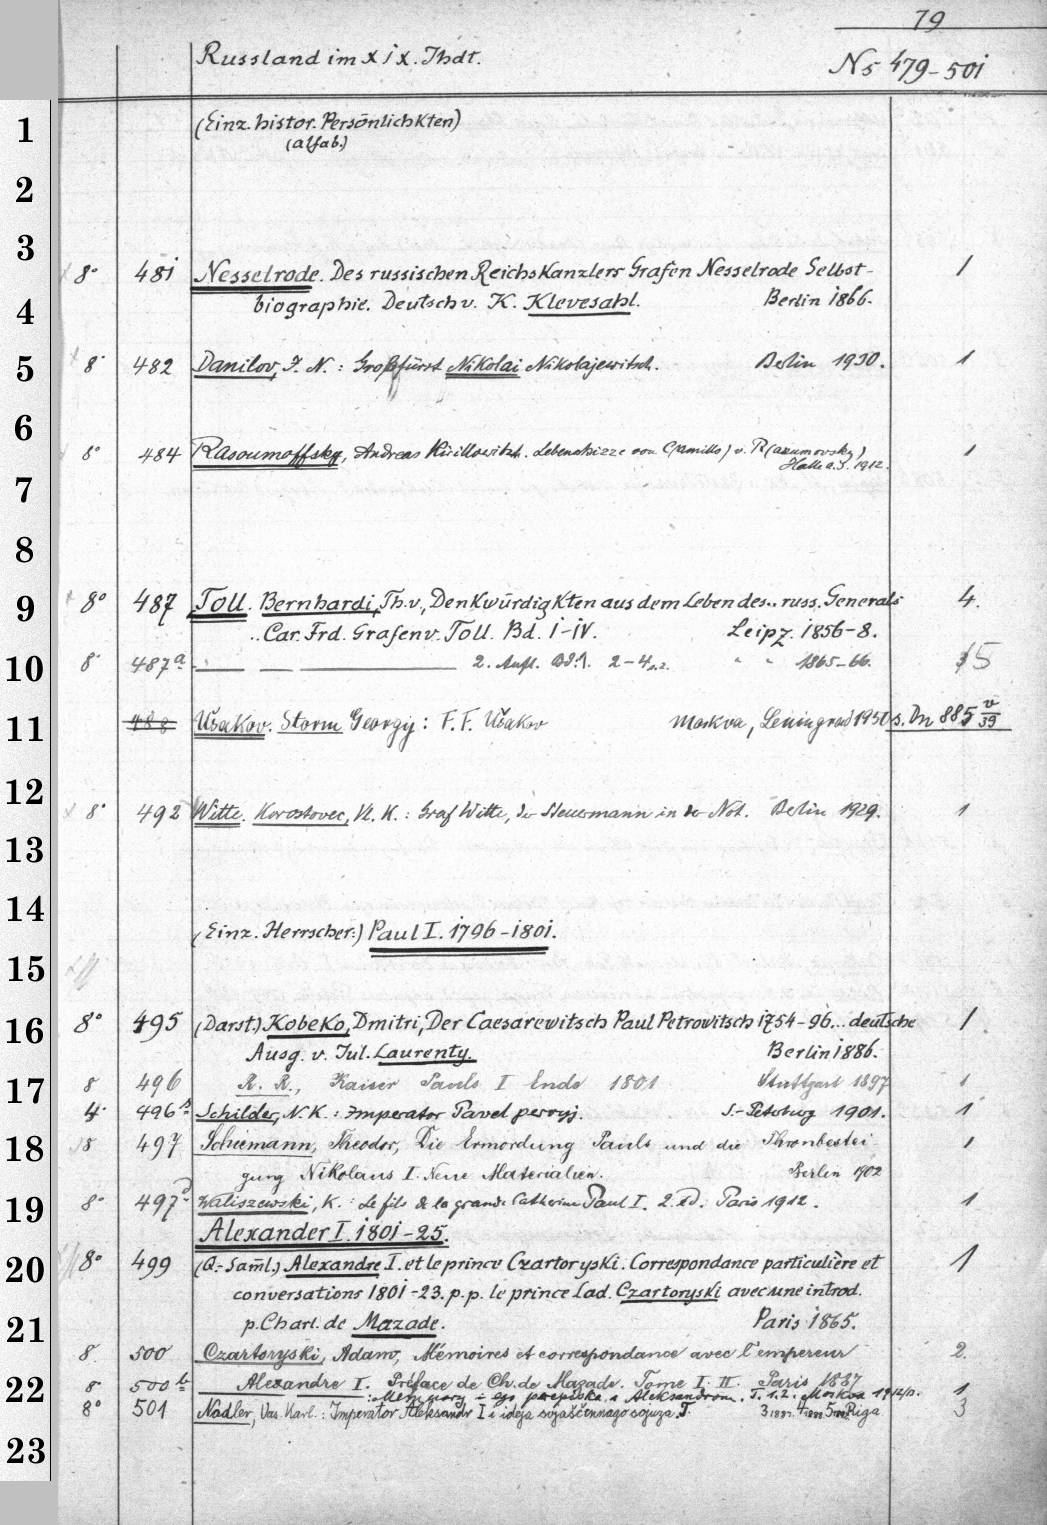 79
Russland im XIX. Jhdt. No 479-501
1
(Einz. histor. Persönlichkten)
(alfab.)
2
3
8° 481 Nesselrode. Des russischen Reichskanzlers Grafen Nesselrode Selbst- 1
4
biographie. Deutsch v. K. Klevesahl. Berlin 1866.
5
8° 482 Danilov, J. N.: Großfürst Nikolai Nikolajewitsch. Berlin 1930. 1
6
8° 484 Rasoumoffsky, Andreas Kirillowitsch. Lebensskizze von C(amillo) v. R(asumovsky) 1
Halle a.S. 1912.
7
8
9
8° 487 Toll. Bernhardi, Th. v., Denkwürdigkten aus dem Leben des.. russ. Generals 4.
..Car. Frd. Grafen v. Toll. Bd. I-IV. Leipz. 1856-8.
10
8° 487a 2. Aufl. Bd. 1. 2-4 " " 1865-66. 5
11
488 Ušakov. Storm Georgij: F. F. Ušakov Moskva, Leningrad 1930 s. Dn 885 v/39
12
8° 492 Witte. Korostovec, Vl. K.: Graf Witte, der Steuermann in der Not. Berlin 1929. 1
13
14
(Einz. Herrscher:) Paul I. 1796-1801.
15
16
8° 495 (Darst.) Kobeko, Dmitri, Der Caesarewitsch Paul Petrowitsch 1754-96... deutsche 1.
Ausg. v. Jul. Laurenty. Berlin 1886.
17
8 496 R. R., Kaiser Pauls I Ende 1801 Stuttgart 1897 1
4° 496a Schilder, N. K.: Imperator Pavel pervyj. S.-Peterburg 1901. 1
18
8 497 Schiemann, Theodor, Die Ermordung Pauls und die Thronbestei 1
gung Nikolaus I. Neue Materialien. Berlin 1902
19
8° 497a Waliszewski, K.: Le fils de la grande Catherine Paul I. 2. éd. Paris 1912. 1
Alexander I. 1801-25.
20
8° 499 (Q.-Saml.) Alexandre I. et le prince Czartoryski. Correspondance particulière et 1
conversations 1801-23. p.p. le prince Lad. Czartoryski avec une introd.
21
p. Charl. de Mazade. Paris 1865.
8. 500 Czartoryski, Adam, Mémoires et correspondance avec l'empereur 2.
22
Alexandre I. Préface de Ch. de Mazade. Tome I. II. Paris 1887
8° 500b : Memuary i ego perepiska s Aleksandrom. T. 1. 2. Moskva 1912/13. 1
8° 501 Nadler, Vas. Karl.: Imperator Aleksandr I i ideja svjaščennago sojuza. T. 3 4 5 Riga 3
23